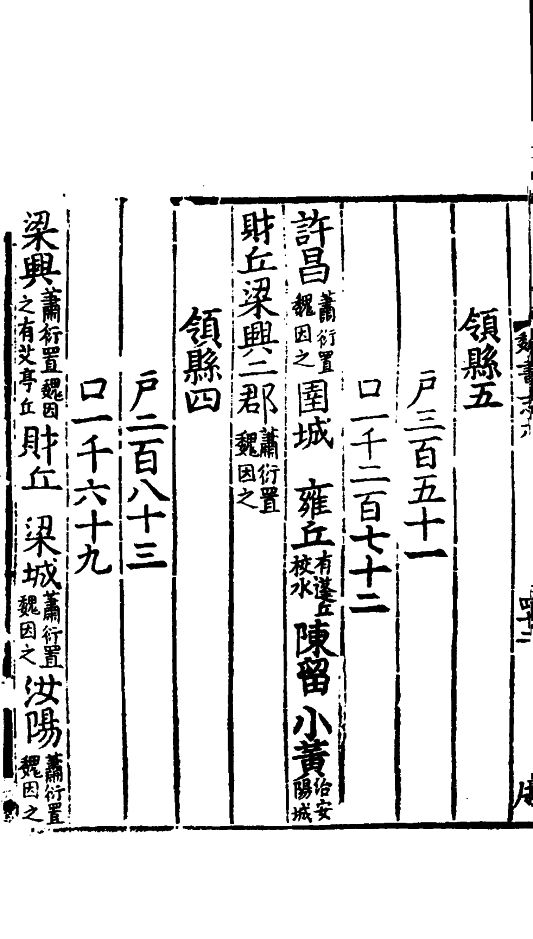 魏書志
四十二
領縣五
戶三百五十一
口一千二百七十二
許昌蕭衍置魏因之圉城 雍丘有蓬丘校水陳留 小黃治安陽城
財丘梁興二郡蕭衍置魏因之
領縣四
戶二百八十三
口一千六十九
梁興蕭衍置魏因之有艾亭丘財丘 梁城蕭衍置魏因之汝陽蕭衍置魏因之